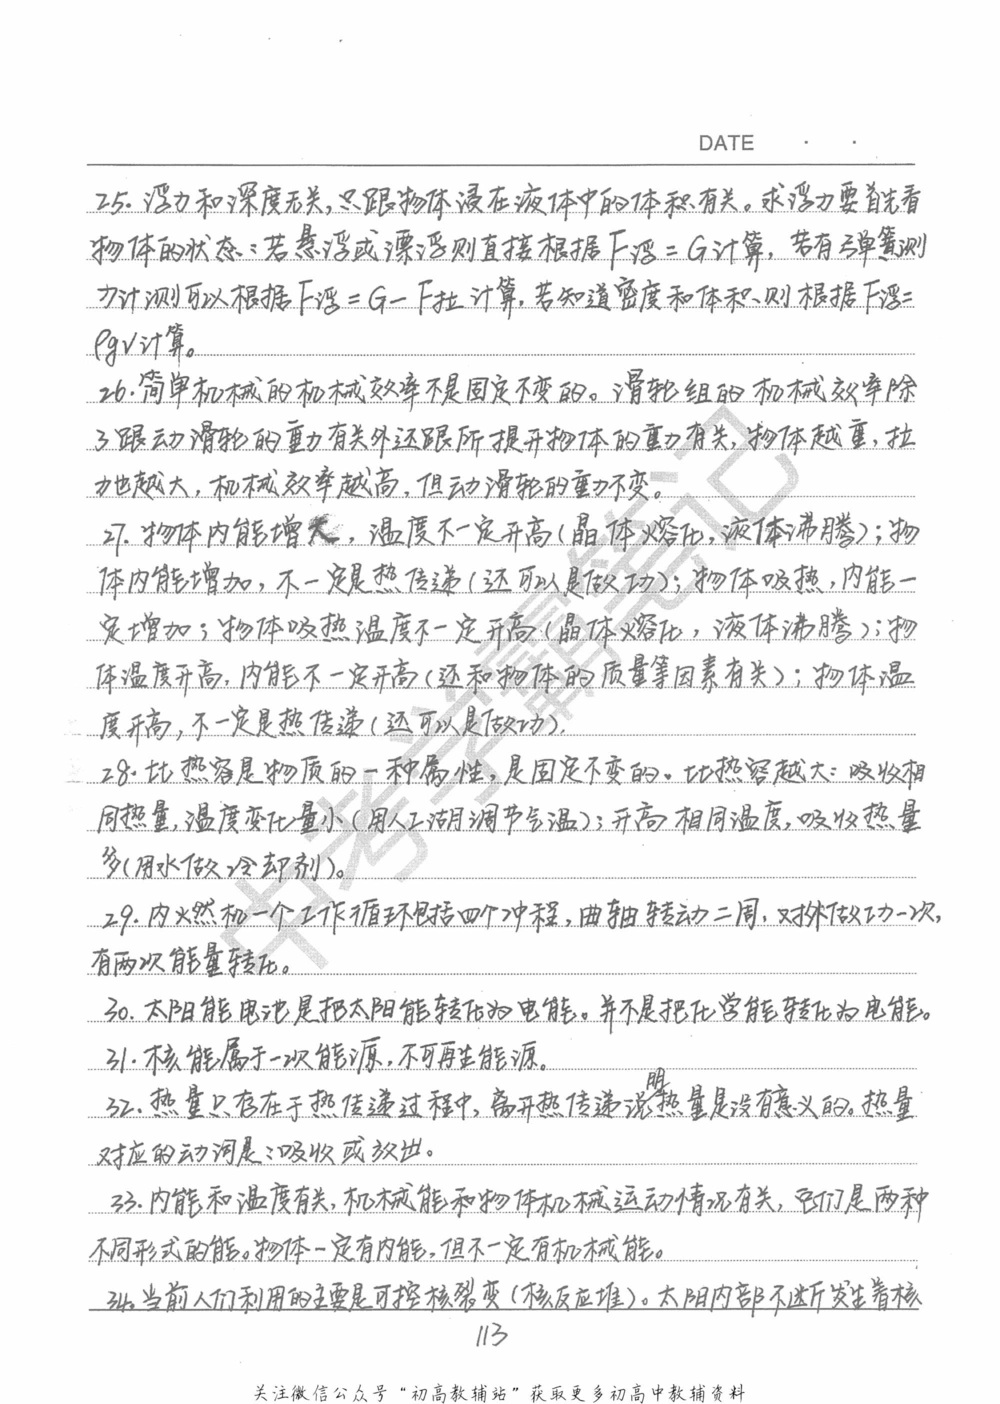 DATE · ·
25. 浮力和深度无关,只跟物体浸在液体中的体积有关。求浮力要首先看
物体的状态:若悬浮或漂浮则直接根据F浮=G计算,若有弹簧测
力计则可以根据F浮=G-F拉计算,若知道密度和体积,则根据F浮=
ρgv计算。
26.简单机械的机械效率不是固定不变的。滑轮组的机械效率除
了跟动滑轮的重力有关外还跟所提升物体的重力有关,物体越重,拉
力也越大,机械效率越高,但动滑轮的重力不变。
27.物体内能增大,温度不一定升高(晶体熔化,液体沸腾);物
体内能增加,不一定是热传递(还可以是做功);物体吸热,内能一
定增加;物体吸热温度不一定升高(晶体熔化,液体沸腾);物
体温度升高,内能不一定升高(还和物体的质量等因素有关);物体温
度升高,不一定是热传递(还可以是做功)。
28.比热容是物质的一种属性,是固定不变的。比热容越大:吸收相
同热量,温度变化量小(用人工湖调节气温);升高相同温度,吸收热量
多(用水做冷却剂)。
29.内燃机一个工作循环包括四个冲程,曲轴转动二周,对外做功一次,
有两次能量转化。
30.太阳能电池是把太阳能转化为电能。并不是把化学能转化为电能。
31.核能属于一次能源,不可再生能源。
32.热量只存在于热传递过程中,离开热传递说明热量是没有意义的。热量
对应的动词是:吸收或放出。
33.内能和温度有关,机械能和物体机械运动情况有关,它们是两种
不同形式的能。物体一定有内能,但不一定有机械能。
34.当前人们利用的主要是可控核裂变(核反应堆)。太阳内部不断发生着核
113
关注微信公众号"初高教辅站"获取更多初高中教辅资料
中考学霸笔记